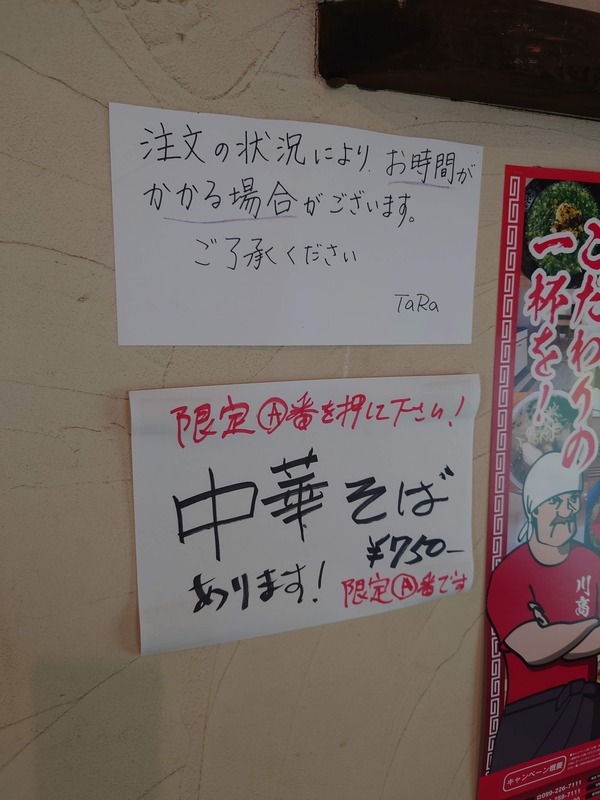 注文の状況により、お時間が
かかる場合がございます。
ご了承ください
TaRa
限定Ⓐ番を押して下さい!
中華そば
¥750-
あります!
限定Ⓐ番です
こだわりの
一杯を!
川高
キャンペーン概要
☎099-226-7111